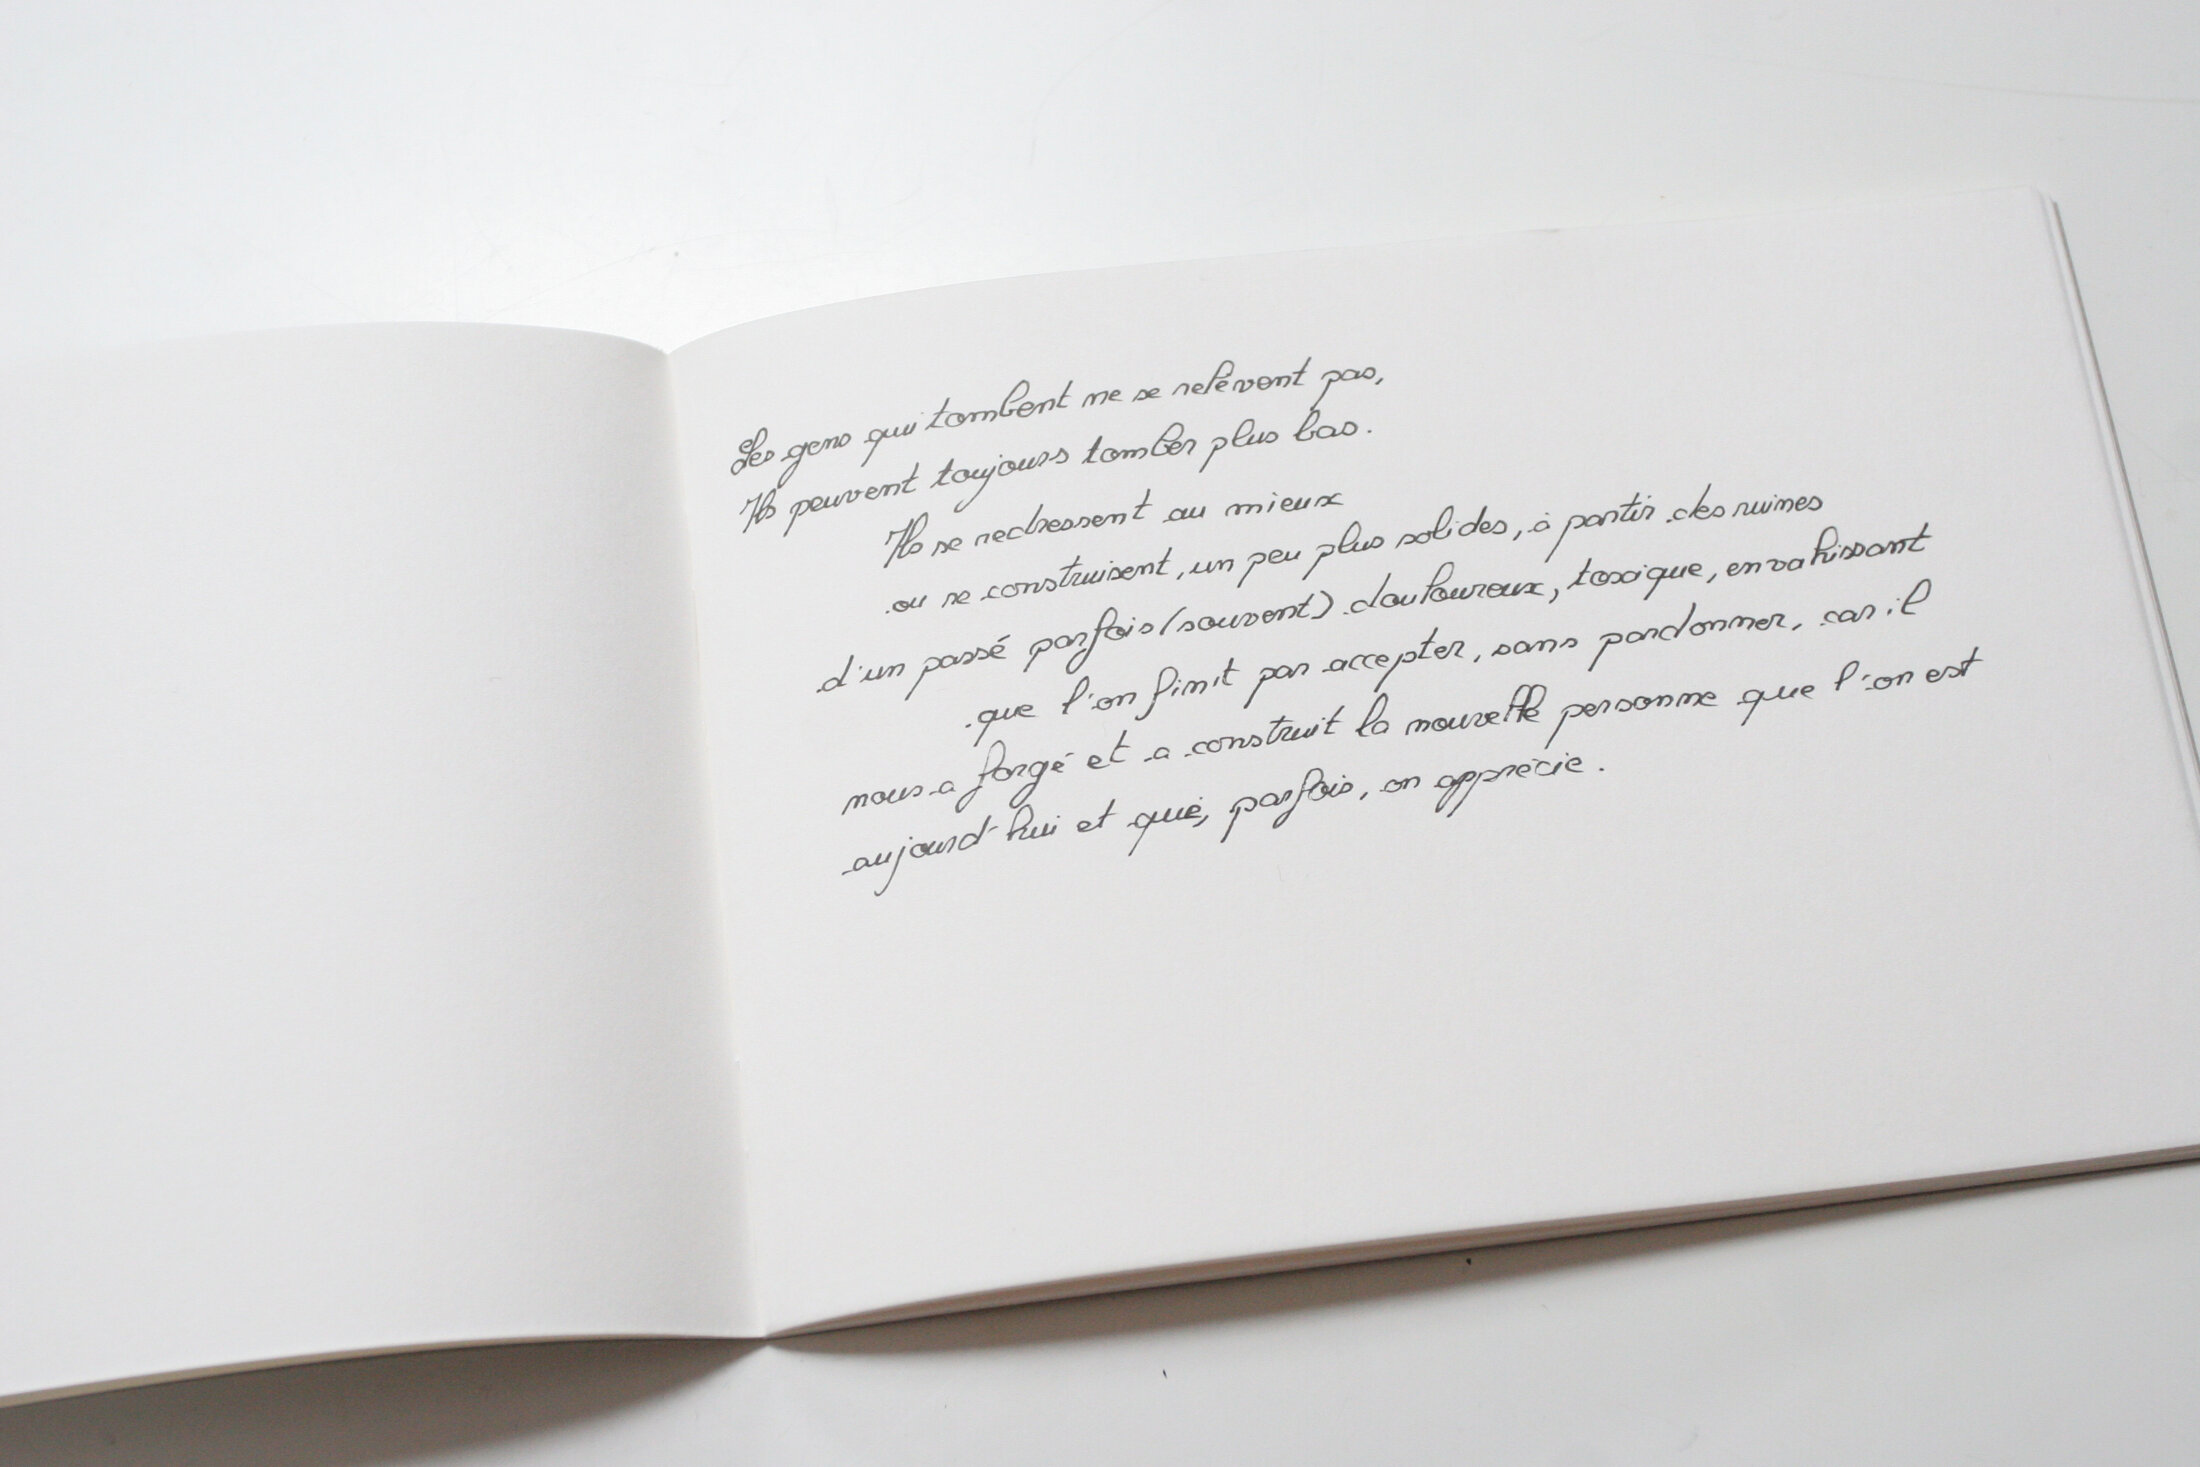 Les gens qui tombent ne se relèvent pas,
Ils peuvent toujours tomber plus bas.
Ils se redressent au mieux
ou se construisent, un peu plus solides, à partir des ruines
d'un passé parfois (souvent) douloureux, toxique, envahissant
que l'on finit par accepter, sans pardonner, car il
nous a forgé et a construit la nouvelle personne que l'on est
aujourd'hui et que, parfois, on apprécie.